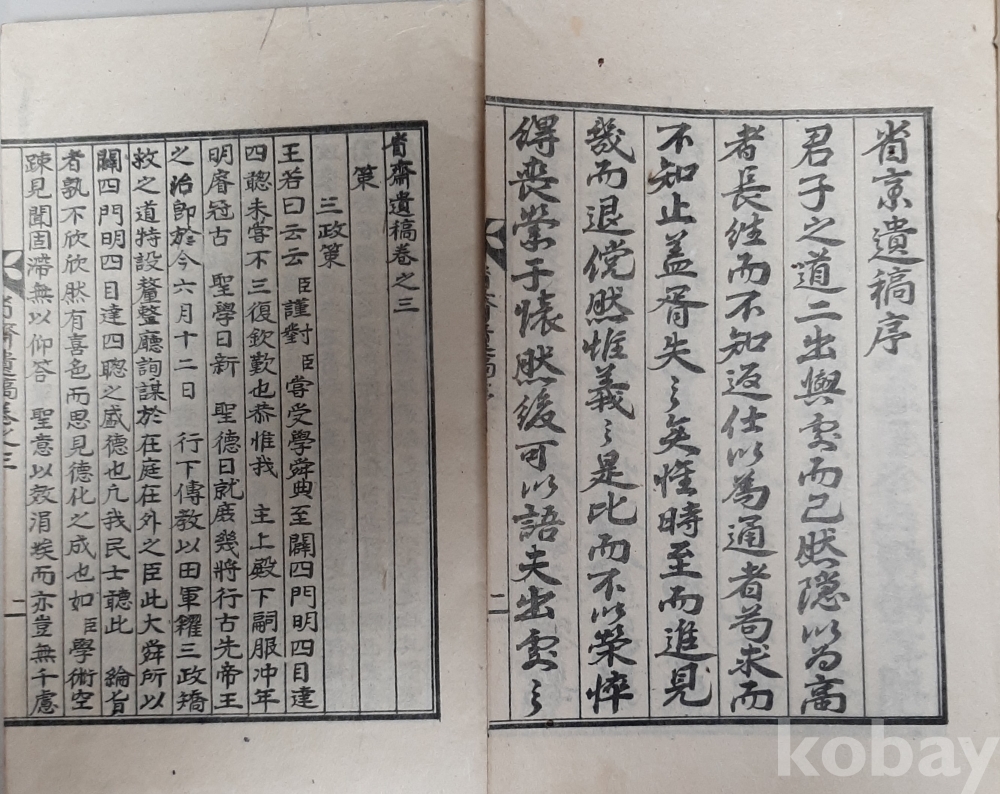 省齋遺稿序
君子之道二出與處而已然隱以為高
者長往而不知返仕以為通者苟求而
不知止盖胥失之矣惟時至而進見
幾而退儻然惟義之是比而不以榮悴
得喪縈于懷然後可以語夫出處之
二
省齋遺稿卷之三
策
三政策
王若曰云云臣謹對臣嘗受學舜典至闢四門明四目達
四聰未嘗不三復欽歎也恭惟我 主上殿下嗣服冲年
明睿冠古 聖學日新 聖德日就庶幾將行古先帝王
之治卽於今六月十二日 行下傳敎以田軍糴三政矯
救之道特設釐整廳詢謀於在庭在外之臣此大舜所以
闢四門明四目達四聰之盛德也凡我民士聽此 綸音
者孰不欣欣然有喜色而思見德化之成也如臣學術空
踈見聞固滯無以仰答 聖意以效涓埃而亦豈無千慮
省齋遺稿卷之三
一
kobay